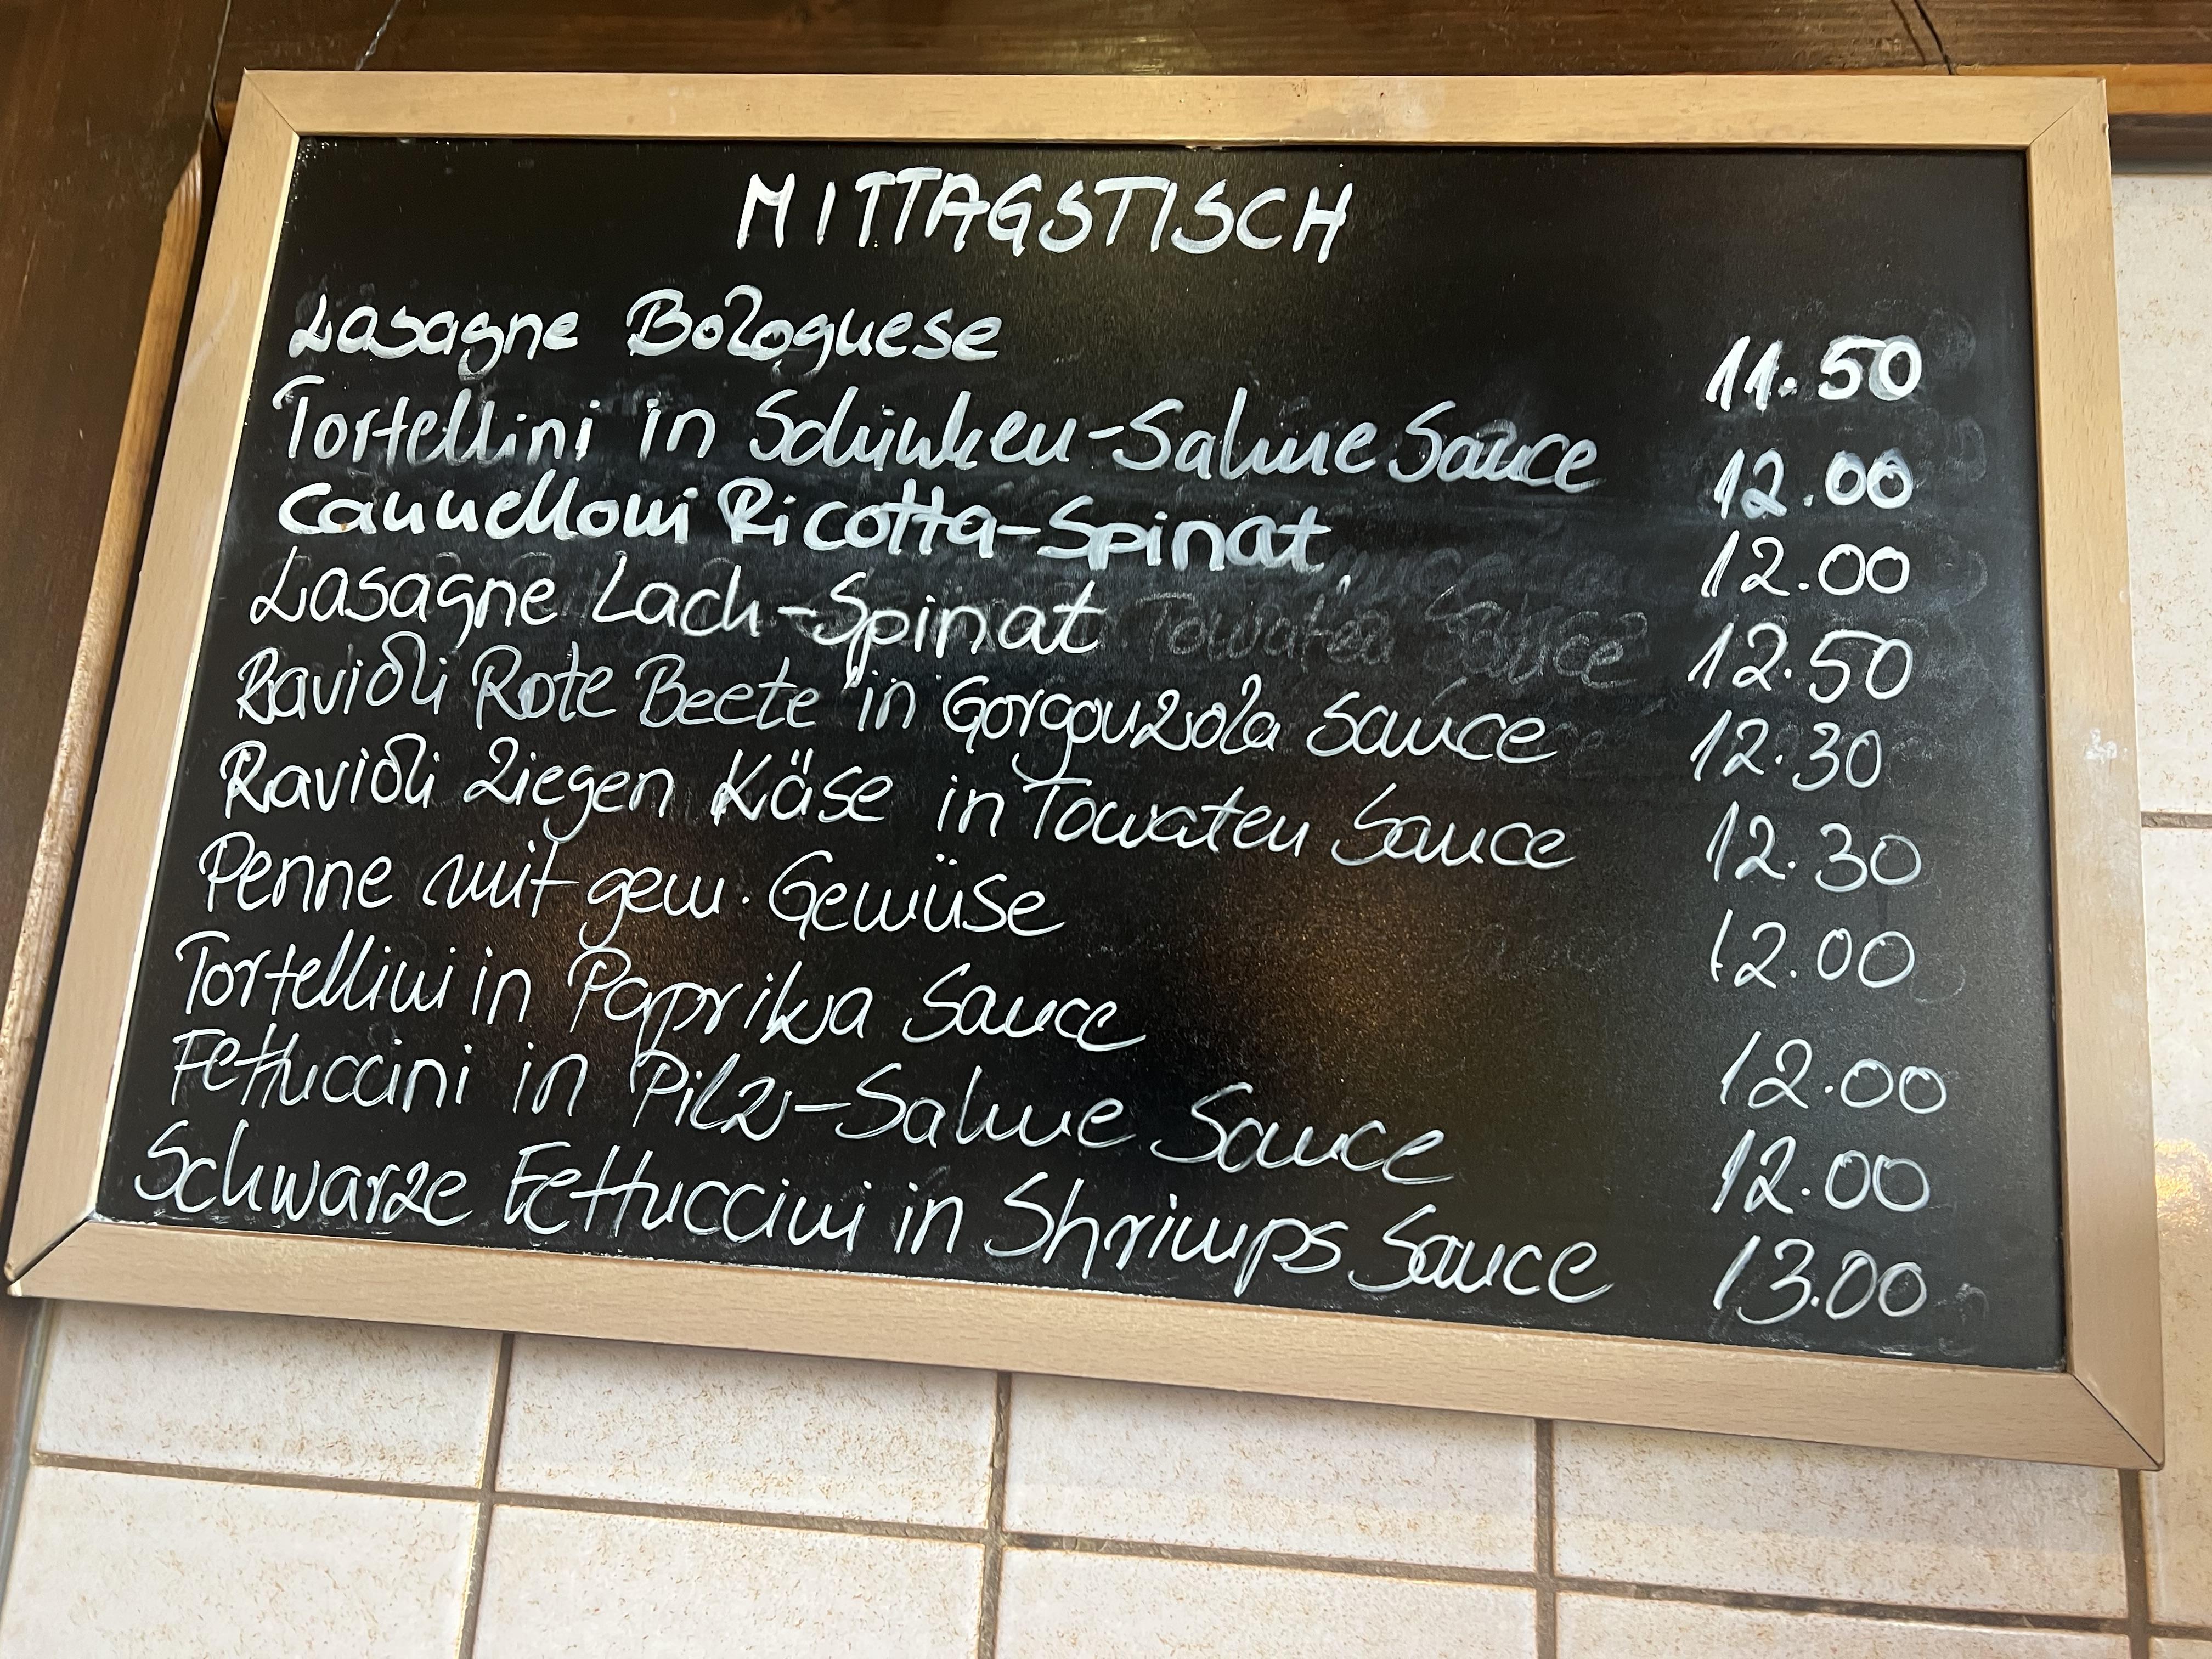 MITTAGSTISCH
Lasagne Bolognese 11.50
Tortellini in Schinken-Sahne Sauce 12.00
Cannelloni Ricotta-Spinat 12.00
Lasagne Lach-Spinat 12.50
Ravioli Rote Beete in Gorgonzola Sauce 12.30
Ravioli Ziegen Käse in Tomaten Sauce 12.30
Penne mit gem. Gemüse 12.00
Tortellini in Paprika Sauce 12.00
Fettuccini in Pilz-Sahne Sauce 12.00
Schwarze Fettuccini in Shrimps Sauce 13.00